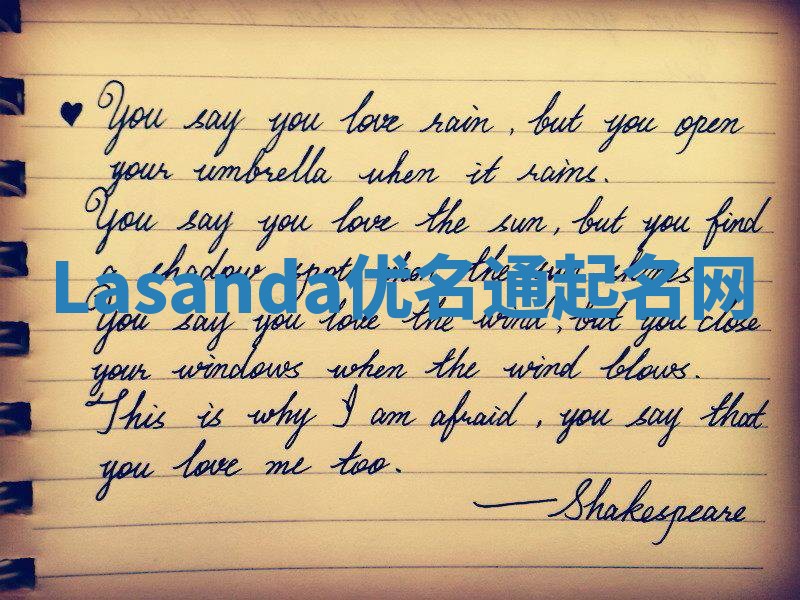 ♥ You say you love rain, but you open
your umbrella when it rains.
You say you love the sun, but you find
a shadow spot when the sun shines
Lasanda优名通起名网
You say you love the wind, but you close
your windows when the wind blows.
This is why I am afraid, you say that
you love me too.
—Shakespeare